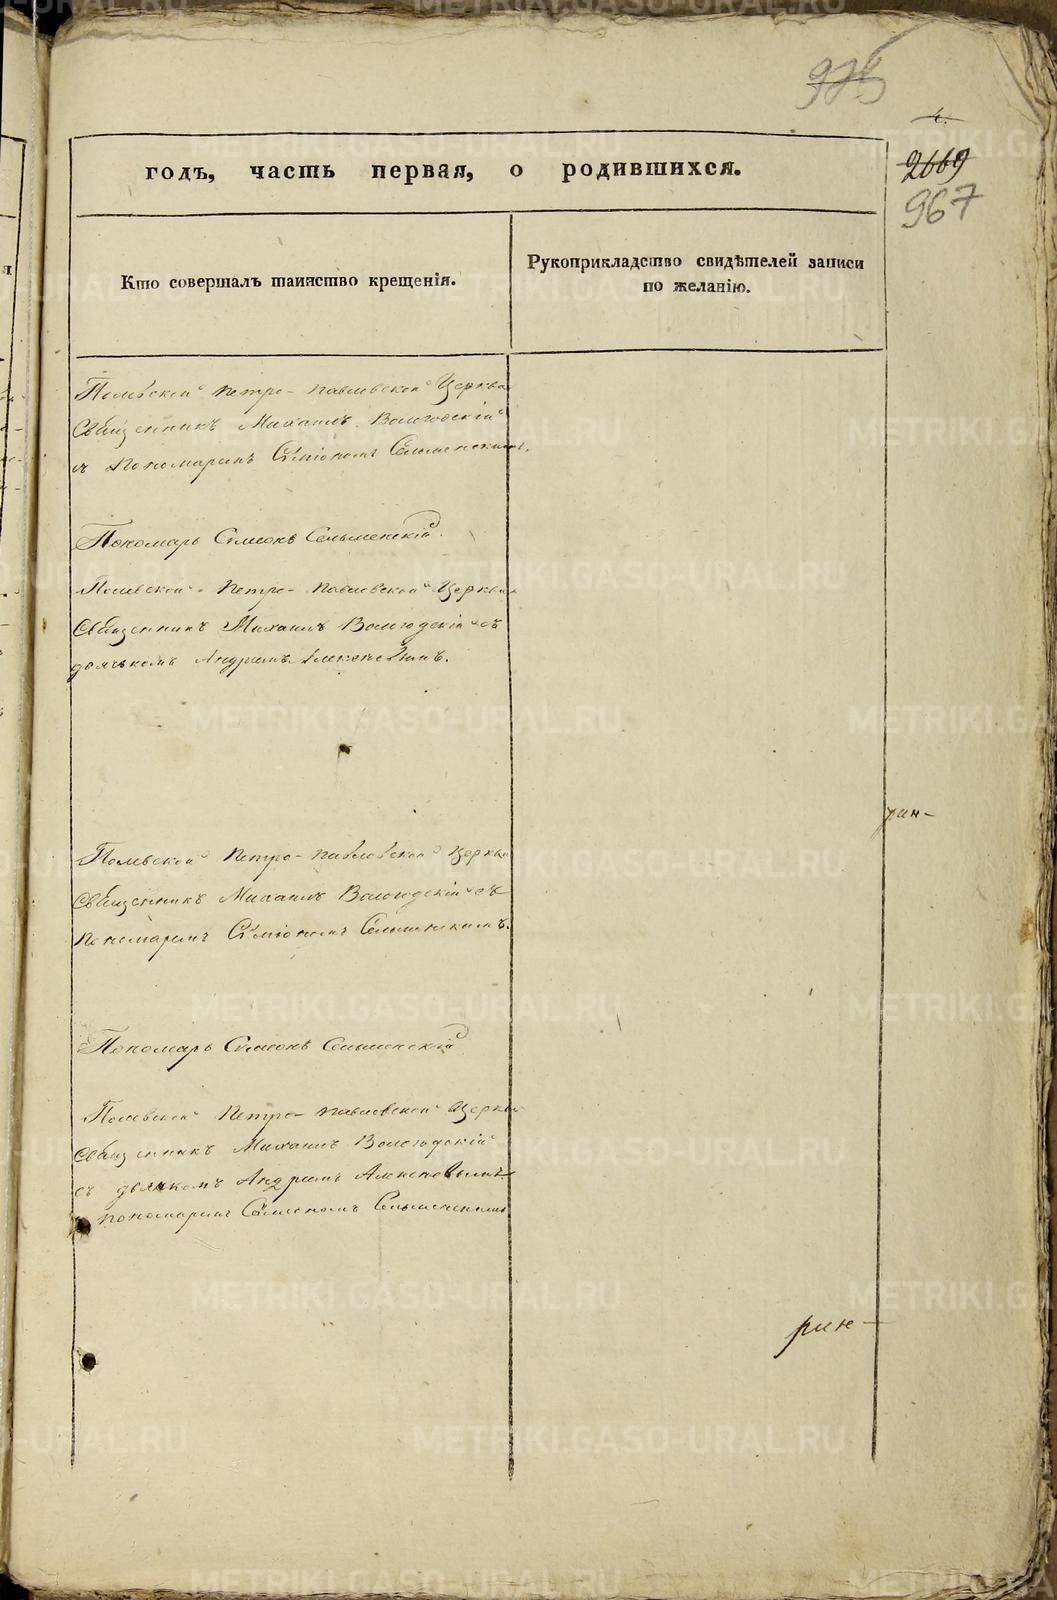 975
4.
2669
967
годъ, часть первая, о родившихся.
Кто совершалъ таинство крещенія.
Рукоприкладство свидѣтелей записи
по желанію.
Полевской Петро-Павловской Церкви
Священникъ Михаилъ Вологодскій
съ Пономаремъ
Пономарь Симеонъ
Полевской Петро-Павловской Церкви
Священникъ Михаилъ Вологодскій съ
дьячкомъ Андреемъ
рин-
Полевской Петро-Павловской Церкви
Священникъ Михаилъ Вологодскій съ
пономаремъ
Пономарь Симеонъ
Полевской Петро-Павловской Церкви
Священникъ Михаилъ Вологодскій
съ дьячкомъ Андреемъ
пономаремъ
рин-
METRIKI.GASO-URAL.RU